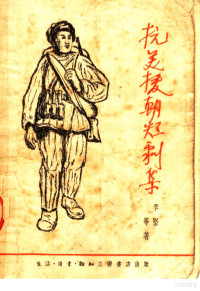 抗美援朝短剧集
李坚
等著
生活·读书·新知三联书店出版